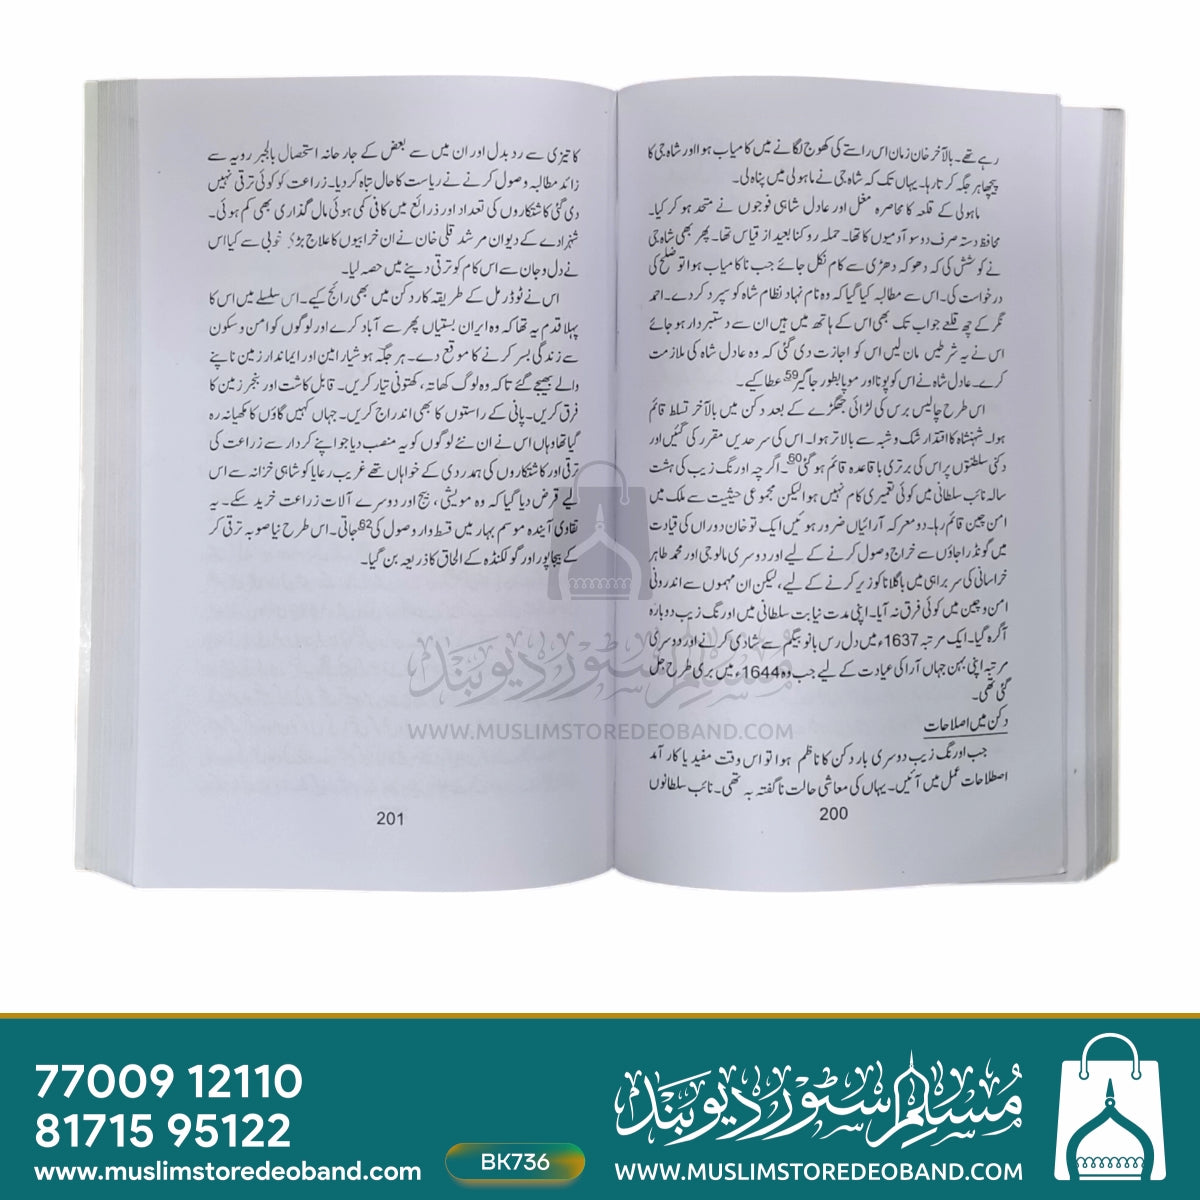 رہے تھے۔ بالآخر خان زمان اس راستے کی کھوج لگانے میں کامیاب ہوا اور شاہ جی کا
پیچھا ہر جگہ کرتا رہا۔ یہاں تک کہ شاہ جی نے ماہولی میں پناہ لی۔
ماہولی کے قلعہ کا محاصرہ مغل اور عادل شاہی فوجوں نے متحد ہو کر کیا۔
محافظ دستہ صرف دو سو آدمیوں کا تھا۔ حملہ روکنا بعید از قیاس تھا۔ پھر بھی شاہ جی
نے کوشش کی کہ دھوکہ دھڑی سے کام نکل جائے جب ناکامیاب ہوا تو صلح کی
درخواست کی۔ اس سے مطالبہ کیا گیا کہ وہ نام نہاد نظام شاہ کو سپرد کر دے۔ احمد
نگر کے چھ قلعے جو اب تک بھی اس کے ہاتھ میں ہیں ان سے دستبردار ہو جائے
اس نے یہ شرطیں مان لیں اس کو اجازت دی گئی کہ وہ عادل شاہ کی ملازمت
کرے۔ عادل شاہ نے اس کو پونا اور سوپا بطور جاگیر 59 عطا کیے۔
اس طرح چالیس برس کی لڑائی جھگڑے کے بعد دکن میں بالآخر تسلط قائم
ہوا۔ شہنشاہ کا اقتدار شک و شبہ سے بالاتر ہوا۔ اس کی سرحدیں مقرر کی گئیں اور
دکنی سلطنتوں پر اس کی برتری باقاعدہ قائم ہو گئی 60۔ اگرچہ اورنگ زیب کی ہشت
سالہ نائب سلطانی میں کوئی تعمیری کام نہیں ہوا لیکن مجموعی حیثیت سے ملک میں
امن چین قائم رہا۔ دو معرکہ آرائیاں ضرور ہوئیں ایک تو خان دوراں کی قیادت
میں گونڈ راجاؤں سے خراج وصول کرنے کے لیے اور دوسری مالوجی اور محمد طاہر
خراسانی کی سربراہی میں باگلانا کو زیر کرنے کے لیے، لیکن ان مہموں سے اندرونی
امن و چین میں کوئی فرق نہ آیا۔ اپنی مدت نیابت سلطانی میں اورنگ زیب دوبارہ
آگرہ گیا۔ ایک مرتبہ 1637ء میں دل رس بانو بیگم سے شادی کرنے اور دوسری
مرتبہ اپنی بہن جہاں آرا کی عیادت کے لیے جب وہ 1644ء میں بری طرح جل
گئی تھی۔
دکن میں اصلاحات
جب اورنگ زیب دوسری بار دکن کا ناظم ہوا تو اس وقت مفید یا کارآمد
اصطلاحات عمل میں آئیں۔ یہاں کی معاشی حالت ناگفتہ بہ تھی۔ نائب سلطانوں
200
کا تیزی سے ردبدل اور ان میں سے بعض کے جارحانہ استحصال بالجبر رویہ سے
زائد مطالبہ وصول کرنے نے ریاست کا حال تباہ کر دیا۔ زراعت کو کوئی ترقی نہیں
دی گئی کاشتکاروں کی تعداد اور ذرائع میں کافی کمی ہوئی مال گذاری بھی کم ہوئی۔
شہزادے کے دیوان مرشد قلی خان نے ان خرابیوں کا علاج بڑی خوبی سے کیا اس
نے دل و جان سے اس کام کو ترقی دینے میں حصہ لیا۔
اس نے ٹوڈرمل کے طریقہ کار دکن میں بھی رائج کیے۔ اس سلسلے میں اس کا
پہلا قدم یہ تھا کہ وہ ایران بستیاں پھر سے آباد کرے اور لوگوں کو امن و سکون
سے زندگی بسر کرنے کا موقع دے۔ ہر جگہ ہوشیار امین اور ایماندار زمین ناپنے
والے بھیجے گئے تاکہ وہ لوگ کھاتہ، کھتونی تیار کریں۔ قابل کاشت اور بنجر زمین کا
فرق کریں۔ پانی کے راستوں کا بھی اندراج کریں۔ جہاں کہیں گاؤں کا مکھیا نہ رہ
گیا تھا وہاں اس نے ان نئے لوگوں کو یہ منصب دیا جو اپنے کردار سے زراعت کی
ترقی اور کاشتکاروں کی ہمدردی کے خواہاں تھے غریب رعایا کو شاہی خزانہ سے اس
لیے قرض دیا گیا کہ وہ مویشی، بیج اور دوسرے آلات زراعت خرید سکے۔ یہ
تقاوی آیندہ موسم بہار میں قسط وار وصول کی 62 جاتی۔ اس طرح نیا صوبہ ترقی کر
کے بیجاپور اور گولکنڈہ کے الحاق کا ذریعہ بن گیا۔
201
مسلم سٹور دیوبند
WWW.MUSLIMSTOREDEOBAND.COM
77009 12110
81715 95122
www.muslimstoredeoband.com
BK736
مسلم سٹور دیوبند
WWW.MUSLIMSTOREDEOBAND.COM